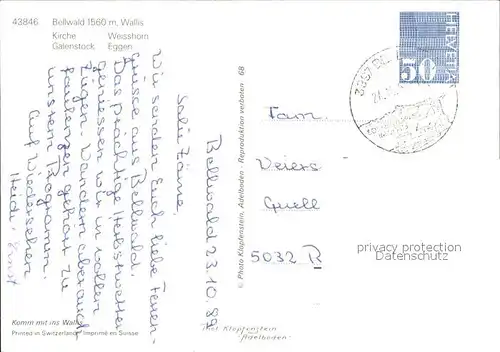 43846 Bellwald 1560 m, Wallis
Kirche Weisshorn
Galenstock Eggen
Bellwald 23.10.89
Salü Zäme,
Wir senden Euch liebe Ferien-
grüsse aus Bellwald.
Das prächtige Herbstwetter
geniessen wir in vollen
Zügen. Wandern aber auch
faulenzen gehört zu
unserem Programm.
Auf Wiedersehen
Heidi Ernst
Komm mit ins Wallis
Printed in Switzerland Imprimé en Suisse
© Photo Klopfenstein, Adelboden - Reproduktion verboten 68
Photo Klopfenstein
Adelboden
HELVETIA
50
Fam.
Veiers
Quell
5032 R
privacy protection
Datenschutz